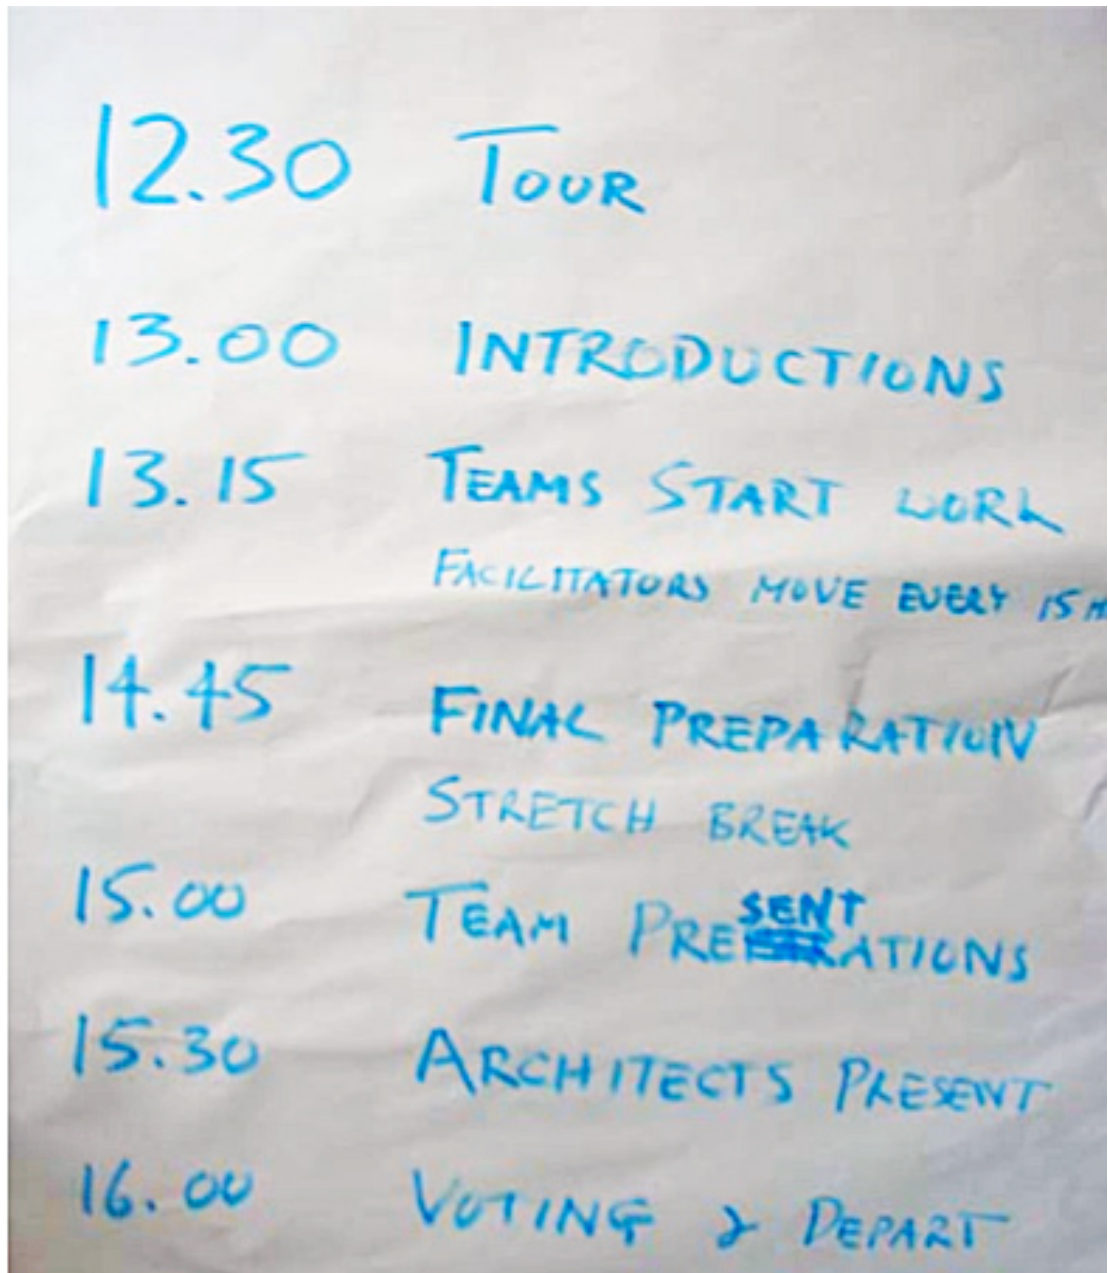 12.30 TOUR
13.00 INTRODUCTIONS
13.15 TEAMS START WORK
FACILITATORS MOVE EVERY 15 M
14.45 FINAL PREPARATION
STRETCH BREAK
15.00 TEAM PRESENTATIONS
15.30 ARCHITECTS PRESENT
16.00 VOTING & DEPART